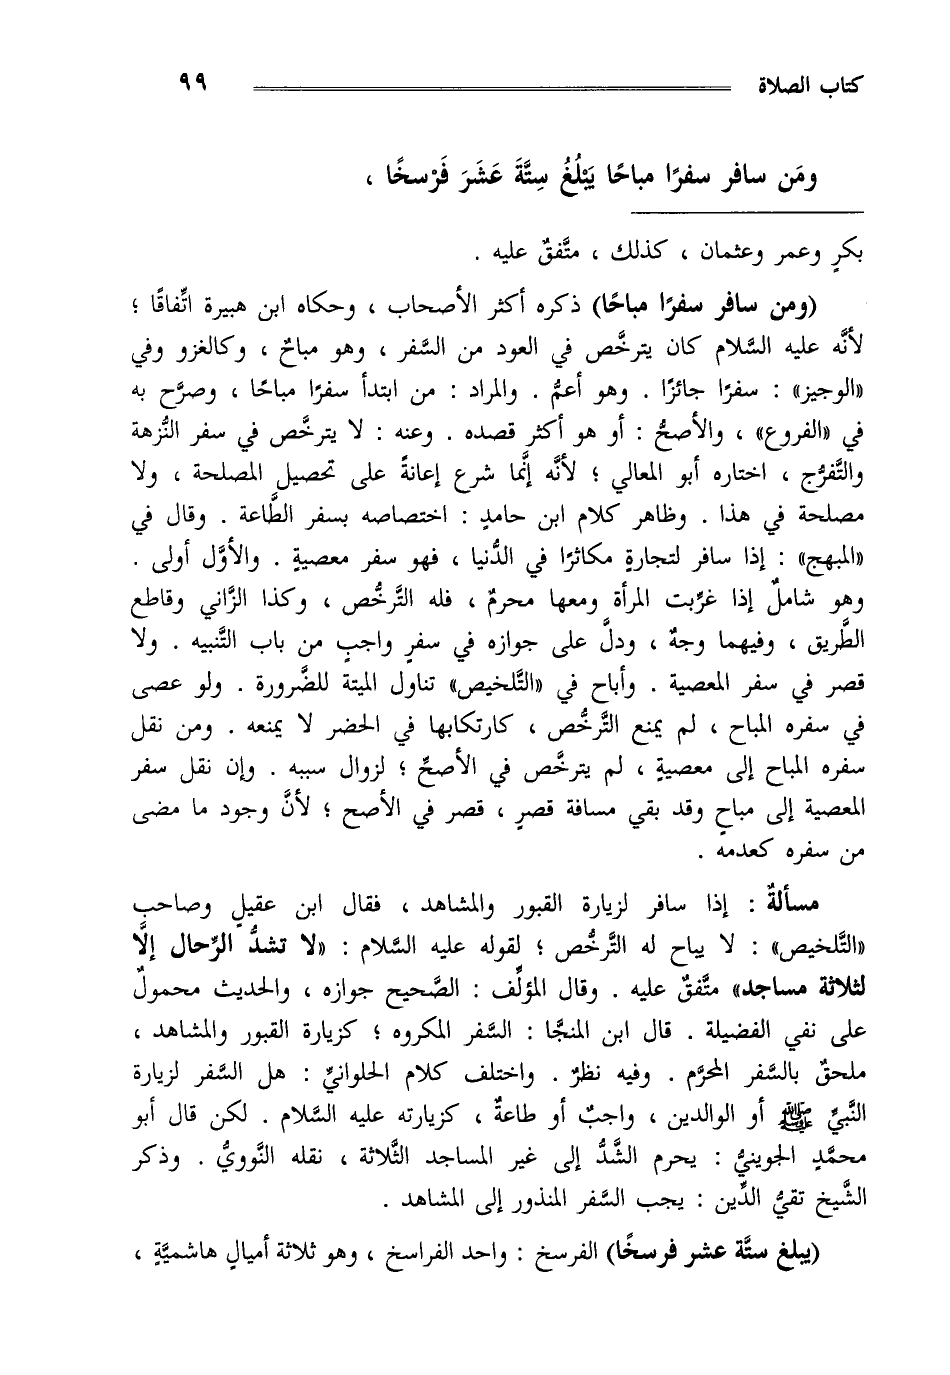 كتاب الصلاة ٩٩
ومَن سافر سفرًا مباحًا يَبْلُغُ سِتَّةَ عَشَرَ فَرْسخًا ،
بكرٍ وعمر وعثمان ، كذلك ، متَّفقٌ عليه .
(ومن سافر سفرًا مباحًا) ذكره أكثر الأصحاب ، وحكاه ابن هبيرة اتِّفاقًا ؛
لأنَّه عليه السَّلام كان يترخَّص في العود من السَّفر ، وهو مباحٌ ، وكالغزو وفي
«الوجيز» : سفرًا جائزًا . وهو أعمُّ . والمراد : من ابتدأ سفرًا مباحًا ، وصرَّح به
في «الفروع» ، والأصحُّ : أو هو أكثر قصده . وعنه : لا يترخَّص في سفر النُّزهة
والتَّفرُّج ، اختاره أبو المعالي ؛ لأنَّه إنَّما شرع إعانةً على تحصيل المصلحة ، ولا
مصلحة في هذا . وظاهر كلام ابن حامدٍ : اختصاصه بسفر الطَّاعة . وقال في
«المبهج» : إذا سافر لتجارةٍ مكاثرًا في الدُّنيا ، فهو سفر معصيةٍ . والأوَّل أولى .
وهو شاملٌ إذا غرِّبت المرأة ومعها محرمٌ ، فله التَّرخُّص ، وكذا الزَّاني وقاطع
الطَّريق ، وفيهما وجهٌ ، ودلَّ على جوازه في سفرٍ واجبٍ من باب التَّنبيه . ولا
قصر في سفر المعصية . وأباح في «التَّلخيص» تناول الميتة للضَّرورة . ولو عصى
في سفره المباح ، لم يمنع التَّرخُّص ، كارتكابها في الحضر لا يمنعه . ومن نقل
سفره المباح إلى معصيةٍ ، لم يترخَّص في الأصحِّ ؛ لزوال سببه . وإن نقل سفر
المعصية إلى مباحٍ وقد بقي مسافة قصرٍ ، قصر في الأصح ؛ لأنَّ وجود ما مضى
من سفره كعدمه .
مسألةٌ : إذا سافر لزيارة القبور والمشاهد ، فقال ابن عقيلٍ وصاحب
«التَّلخيص» : لا يباح له التَّرخُّص ؛ لقوله عليه السَّلام : «لا تشدُّ الرِّحال إلَّا
لثلاثة مساجد» متَّفقٌ عليه . وقال المؤلِّف : الصَّحيح جوازه ، والحديث محمولٌ
على نفي الفضيلة . قال ابن المنجَّا : السَّفر المكروه ؛ كزيارة القبور والمشاهد ،
ملحقٌ بالسَّفر المحرَّم . وفيه نظرٌ . واختلف كلام الحلوانيِّ : هل السَّفر لزيارة
النَّبيِّ ﷺ أو الوالدين ، واجبٌ أو طاعةٌ ، كزيارته عليه السَّلام . لكن قال أبو
محمَّدٍ الجوينيُّ : يحرم الشَّدُّ إلى غير المساجد الثَّلاثة ، نقله النَّوويُّ . وذكر
الشَّيخ تقيُّ الدِّين : يجب السَّفر المنذور إلى المشاهد .
(يبلغ ستَّة عشر فرسخًا) الفرسخ : واحد الفراسخ ، وهو ثلاثة أميالٍ هاشميَّةٍ ،